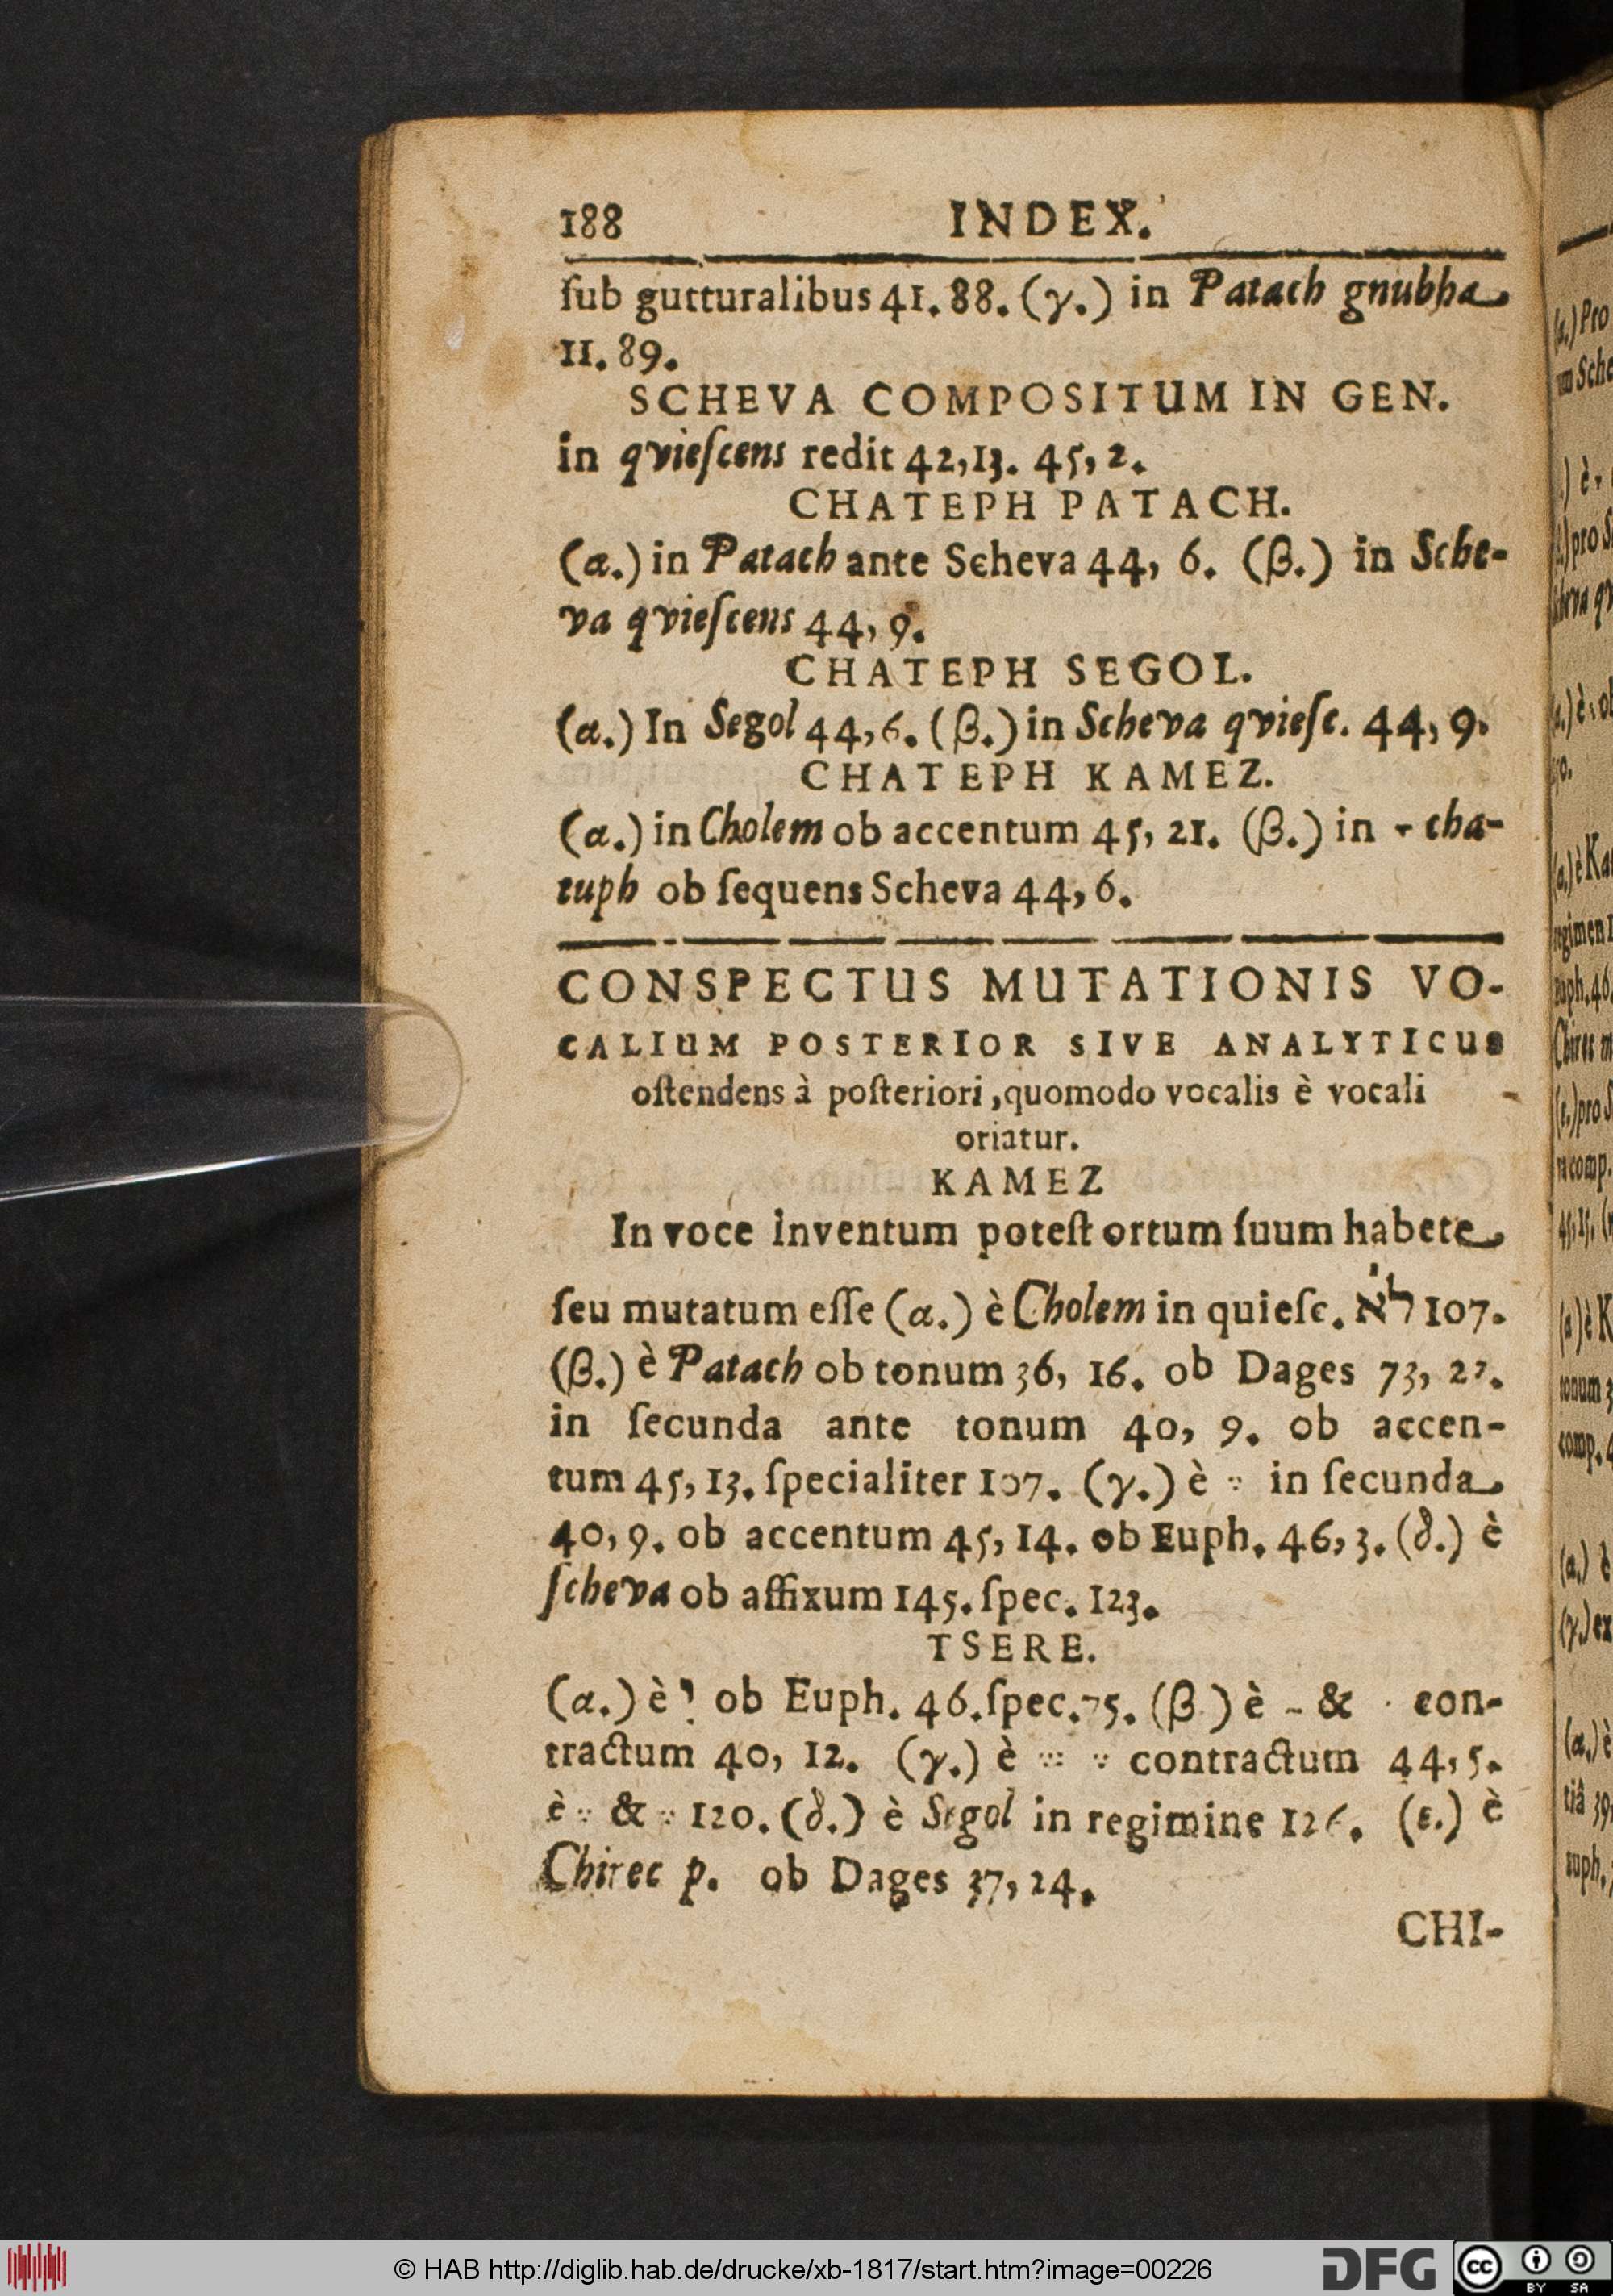 188 INDEX.
ſub gutturalibus 41. 88. (γ.) in Patach gnubha
11. 89.
SCHEVA COMPOSITUM IN GEN.
in qvieſcens redit 42, 13. 45, 2.
CHATEPH PATACH.
(α.) in Patach ante Scheva 44, 6. (β.) in Sche-
va qvieſcens 44, 9.
CHATEPH SEGOL.
(α.) In Segol 44, 6. (β.) in Scheva qvieſc. 44, 9.
CHATEPH KAMEZ.
(α.) in Cholem ob accentum 45, 21. (β.) in ־ָ cha-
tuph ob ſequens Scheva 44, 6.
CONSPECTUS MUTATIONIS VO-
CALIUM POSTERIOR SIVE ANALYTICUS
oſtendens à poſteriori, quomodo vocalis è vocali
oriatur.
KAMEZ
In voce inventum poteſt ortum ſuum habete
ſeu mutatum eſſe (α.) è Cholem in quieſc. לֹא 107.
(β.) è Patach ob tonum 36, 16. ob Dages 73, 27.
in ſecunda ante tonum 40, 9. ob accen-
tum 45, 13. ſpecialiter 107. (γ.) è in ſecunda
40, 9. ob accentum 45, 14. ob Euph. 46, 3. (δ.) è
ſcheva ob affixum 145. ſpec. 123.
TSERE.
(α.) è ob Euph. 46. ſpec. 75. (β.) è & con-
tractum 40, 12. (γ.) è contractum 44, 5.
è & 120. (δ.) è Segol in regimine 126. (ε.) è
Chirec p. ob Dages 37, 24.
CHI-
© HAB http://diglib.hab.de/drucke/xb-1817/start.htm?image=00226
DFG
cc BY SA